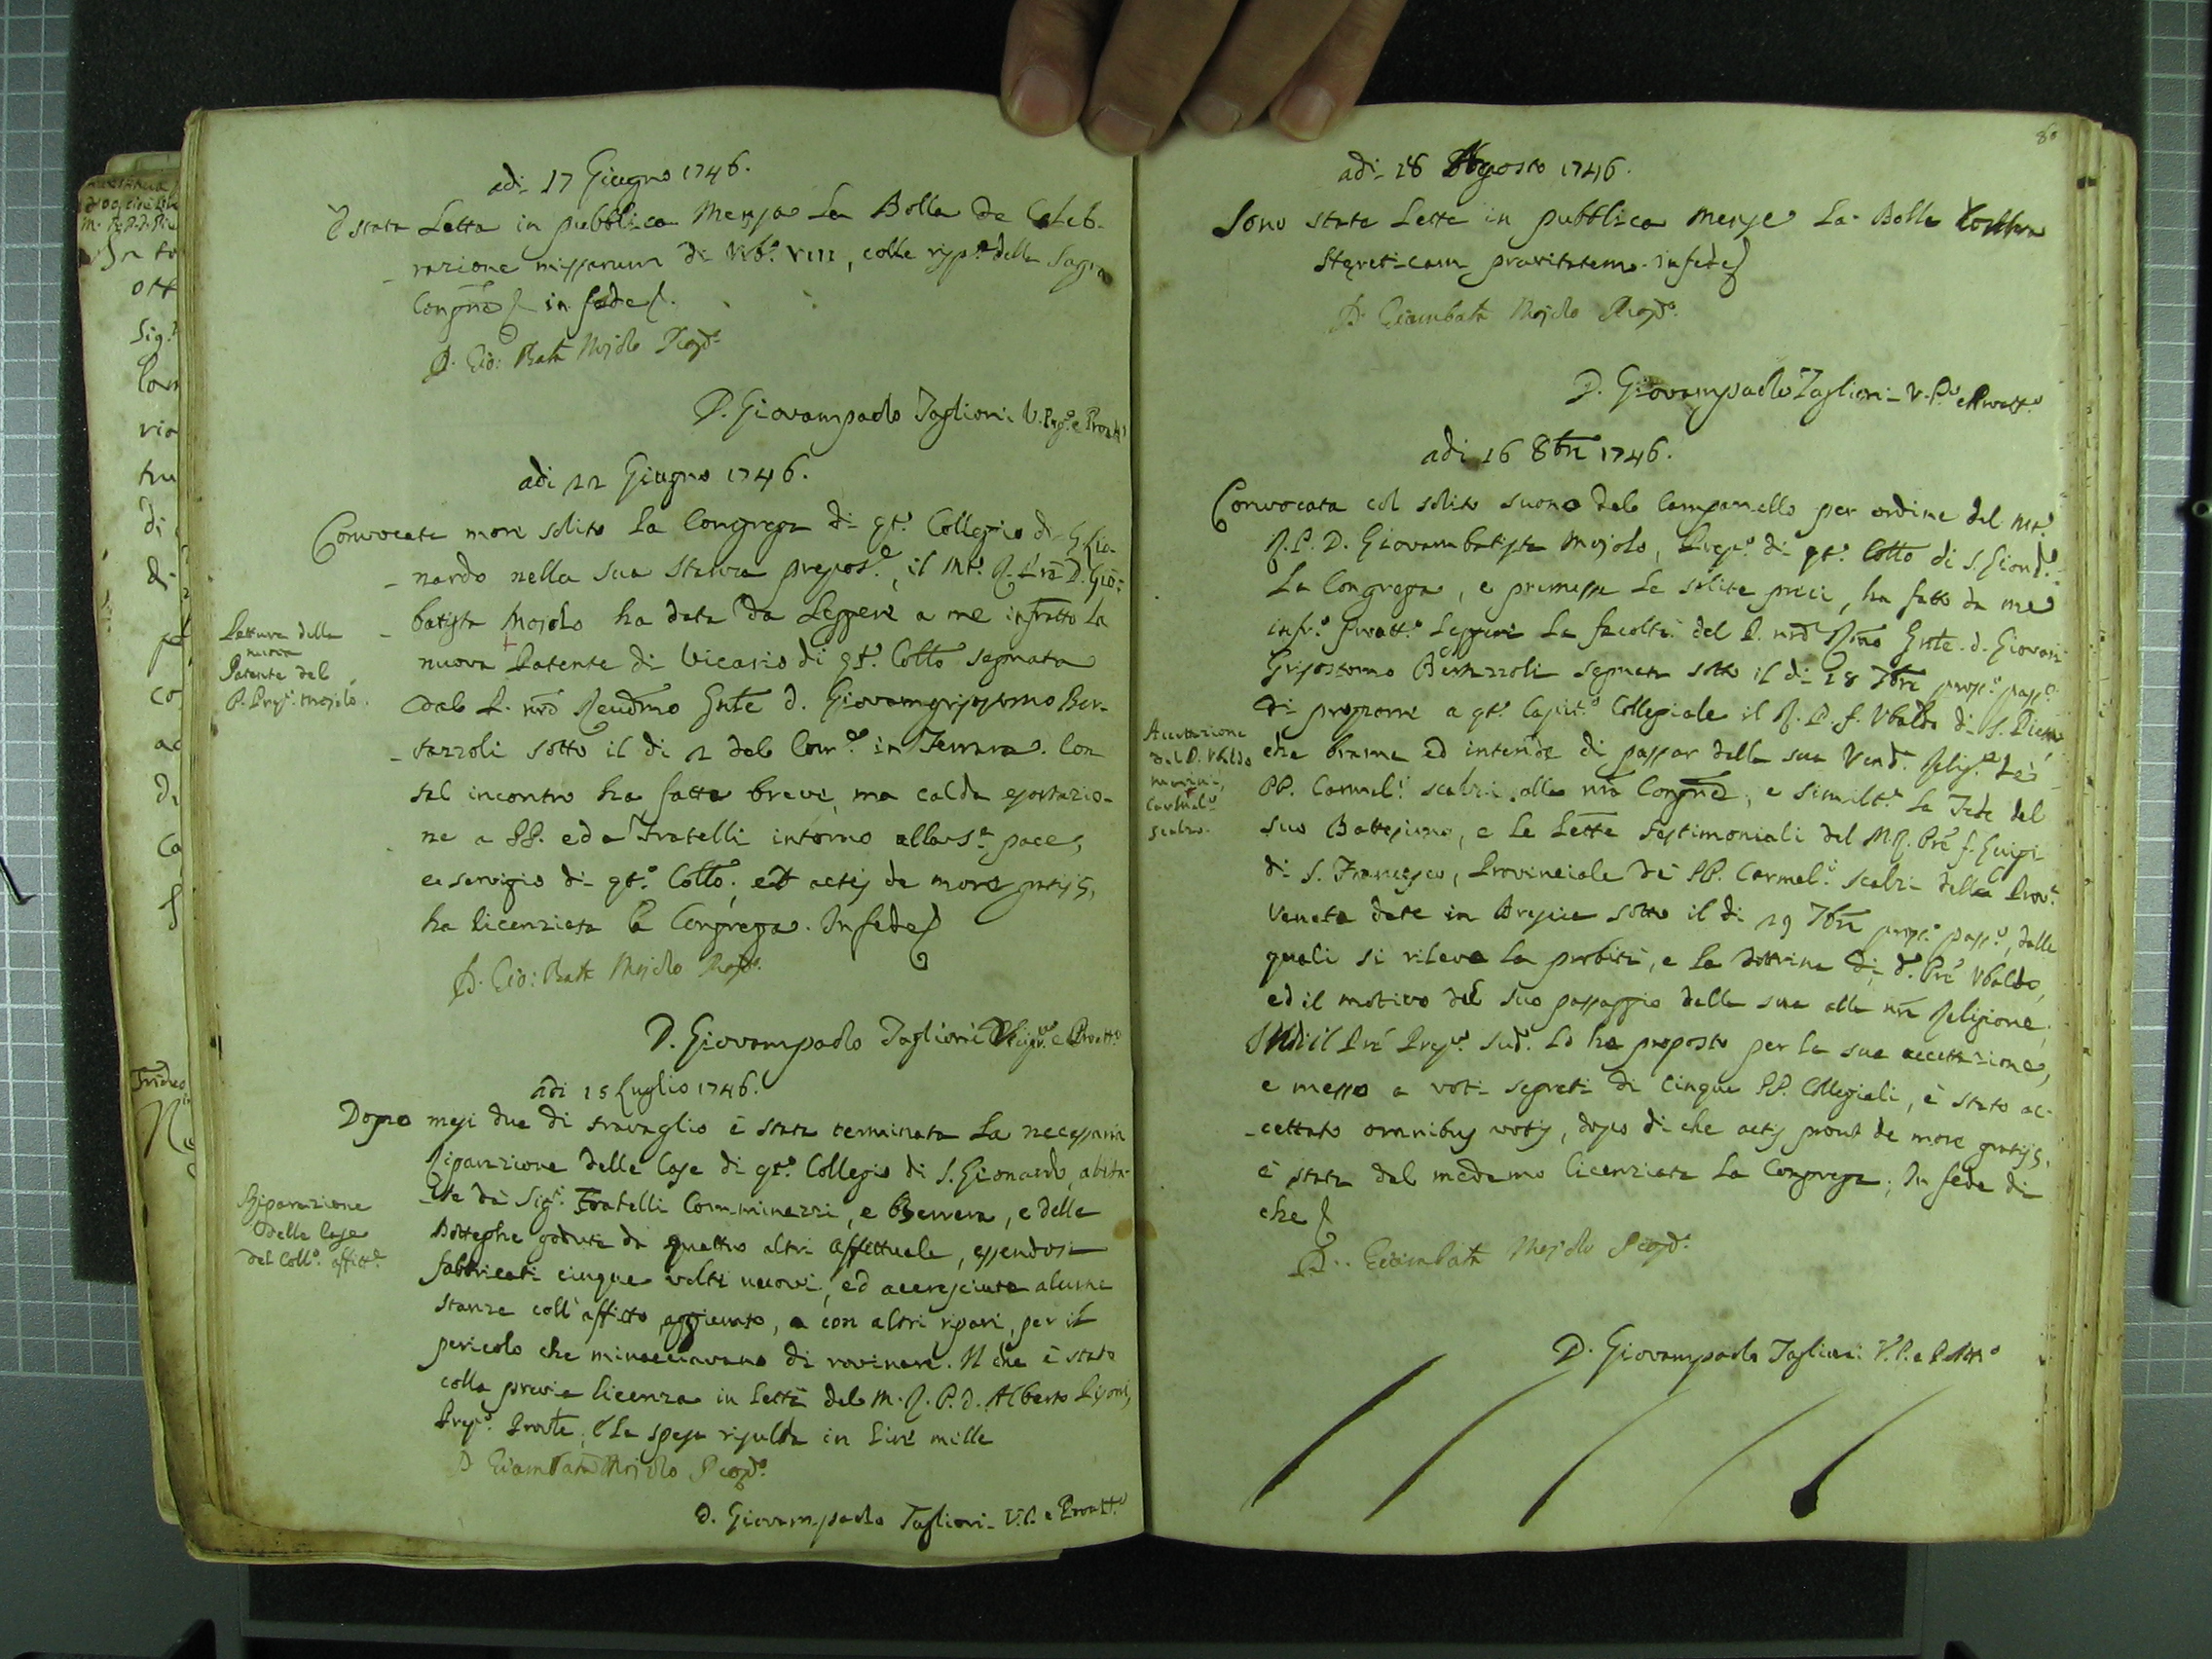 adi 17 Giugno 1746.
È stata Letta in pubblica Mensa La Bolla de Celeb-
razione missarum di Urb.º VIII, colle risp.e della Sagra
Congñe in fede
D. Gio: Batta Mojolo Prep.to
D. Giovampaolo Taglioni V. Prep.º e Proatt.º
adi 22 Giugno 1746.
Convocata more solito La Congrega di qt.º Collegio di S. Lio-
nardo nella sua Stanza prepos.le, il Mt.º R. Prē D. Gio:
batista Mojolo ha data da Leggere a me infratto La
nuova Patente di Vicario di qt.º Collo segnata
dal P. nrō Reudmo Gnłe d. Giovamgrisostomo Ber-
tazzoli sotto il di 2 del Corr.te in Ferrara. Con
tal incontro ha fatta breve, ma calda esortazio-
ne a PP. ed a Fratelli intorno alla s.ta pace,
e servigio di qt.º Collo; et actis de more gratijs,
ha licenziata la Congrega. In fede
D. Gio: Batta Mojolo Prep.to
D. Giovampaolo Taglioni e Proatt.º
Lettura della
nuova
Patente del
P. Prep.º Mojolo.
adi 15 Luglio 1746.
Dopo mesi due di travaglio è stata terminata La necessaria
Riparazione delle Case di qt.º Collegio di S. Lionardo, abita-
te da Sig.i Fratelli Comminazzi, e Barrera, e delle
Botteghe godute da quattro altri Affittuali, essendosi
fabbricati cinque volti nuovi, ed accresciute alcune
stanze coll' affitto aggiunto, e con altri ripari, per il
pericolo che minacciavano di rovinare. Il che è stato
colla previa licenza in Letta del M. R. P. D. Alberto Pisoni,
Prep.º Provłe; e La spesa risulta in Lire mille
D Giambatta Mojolo Prep.to
D. Giovampaolo Taglioni V.P. e Proatt.º
Riparazione
delle Case
del Coll.º affitt.e
80
adi 28 Agosto 1746.
Sono state Lette in pubblica mensa La Bolle Contra
Hereticam pravitatem. in fede
D. Giambatta Mojolo Prep.to
D. Giovampaolo Taglioni V.P.º e Proatt.º
adi 16 8bre 1746.
Convocata col solito suono del Campanello per ordine del Mt.º
R. P. D. Giovambatista Mojolo, Prep.º di qt.º Collo di S. Liond.º
La Congrega, e premesse Le solite preci, ha fatto da me
infr.º Proatt.º Leggere La facoltà del P. nrō Rmo Gnłe d. Giovan
Grisostomo Bertazzoli segnata sotto il di 28 7bre pros.º pass.º
di proporre a qt.º Capit.º Collegiale il R. P. f. Ubaldo di S. Pietro
che brama ed intende di passar dalla sua Vend. Relig.e de'
PP. Carmel.i scalzi alla nrā Congñe, e similt.e La Fede del
suo Battesimo, e Le Lette testimoniali del M.R. Prē f. Luigi
di S. Francesco, Provinciale de' PP. Carmel.i Scalzi della Prov.a
Veneta date in Brescia sotto il di 29 7bre pros.º pass.º, dalle
quali si rileva La probità, e La dottrina di d.º Prē Ubaldo,
ed il motivo del suo passaggio dalla sua alla nrā Religione.
Indi il Prē Prep.º Sud.º Lo ha proposto per La sua accettazione,
e messo a voti segreti di cinque PP. Collegiali, è stato ac-
cettato omnibus votis, dopo di che actis prout de more gratijs,
è stata dal medemo licenziata La Congrega; In fede di
che
D. Giambatta Mojolo Prep.to
D. Giovampaolo Taglioni V.P. e P.Att.º
Accettazione
del P. Ubaldo
Carmel.º
scalzo.